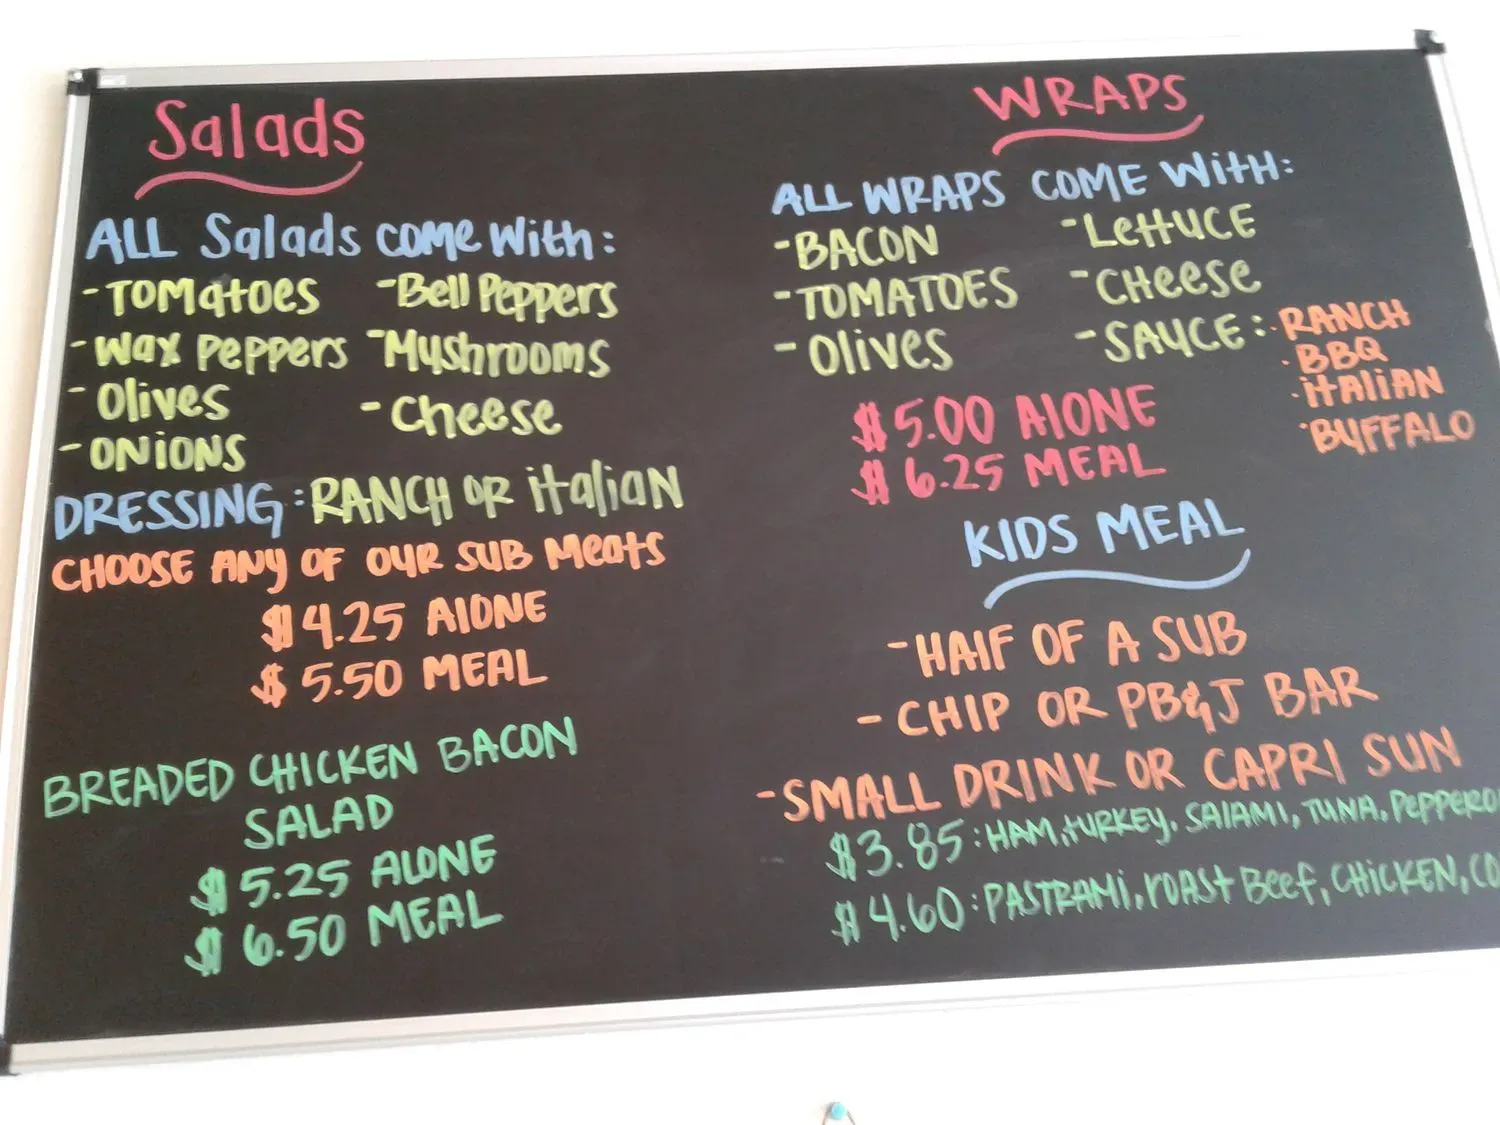 Salads
ALL Salads come with:
-TOMatoes -Bell Peppers
-wax peppers -Mushrooms
-Olives -Cheese
-ONiONS
DRESSING: RANCH OR italiaN
CHOOSE ANy OF OUR SUB Meats
$4.25 AlONE
$5.50 MEAL
BREADED CHICKEN BACON
SALAD
$5.25 ALONE
$6.50 MEAL
WRAPS
ALL WRAPS COME WitH:
-BACON -LettUCE
-TOMATOES -CHeeSe
-Olives -SAUCE: ·RANCH
·BBQ
·itALiAN
·BUFFALO
$5.00 AlONE
$6.25 MEAL
KIDS MEAL
-HAlF OF A SUB
-CHIP OR PB&J BAR
-SMALL DRINK OR CAPRI SUN
$3.85: HAM, tURKEY, SAlAMI, TUNA,
$4.60: PASTRAMi, rOASt Beef, CHICKEN,